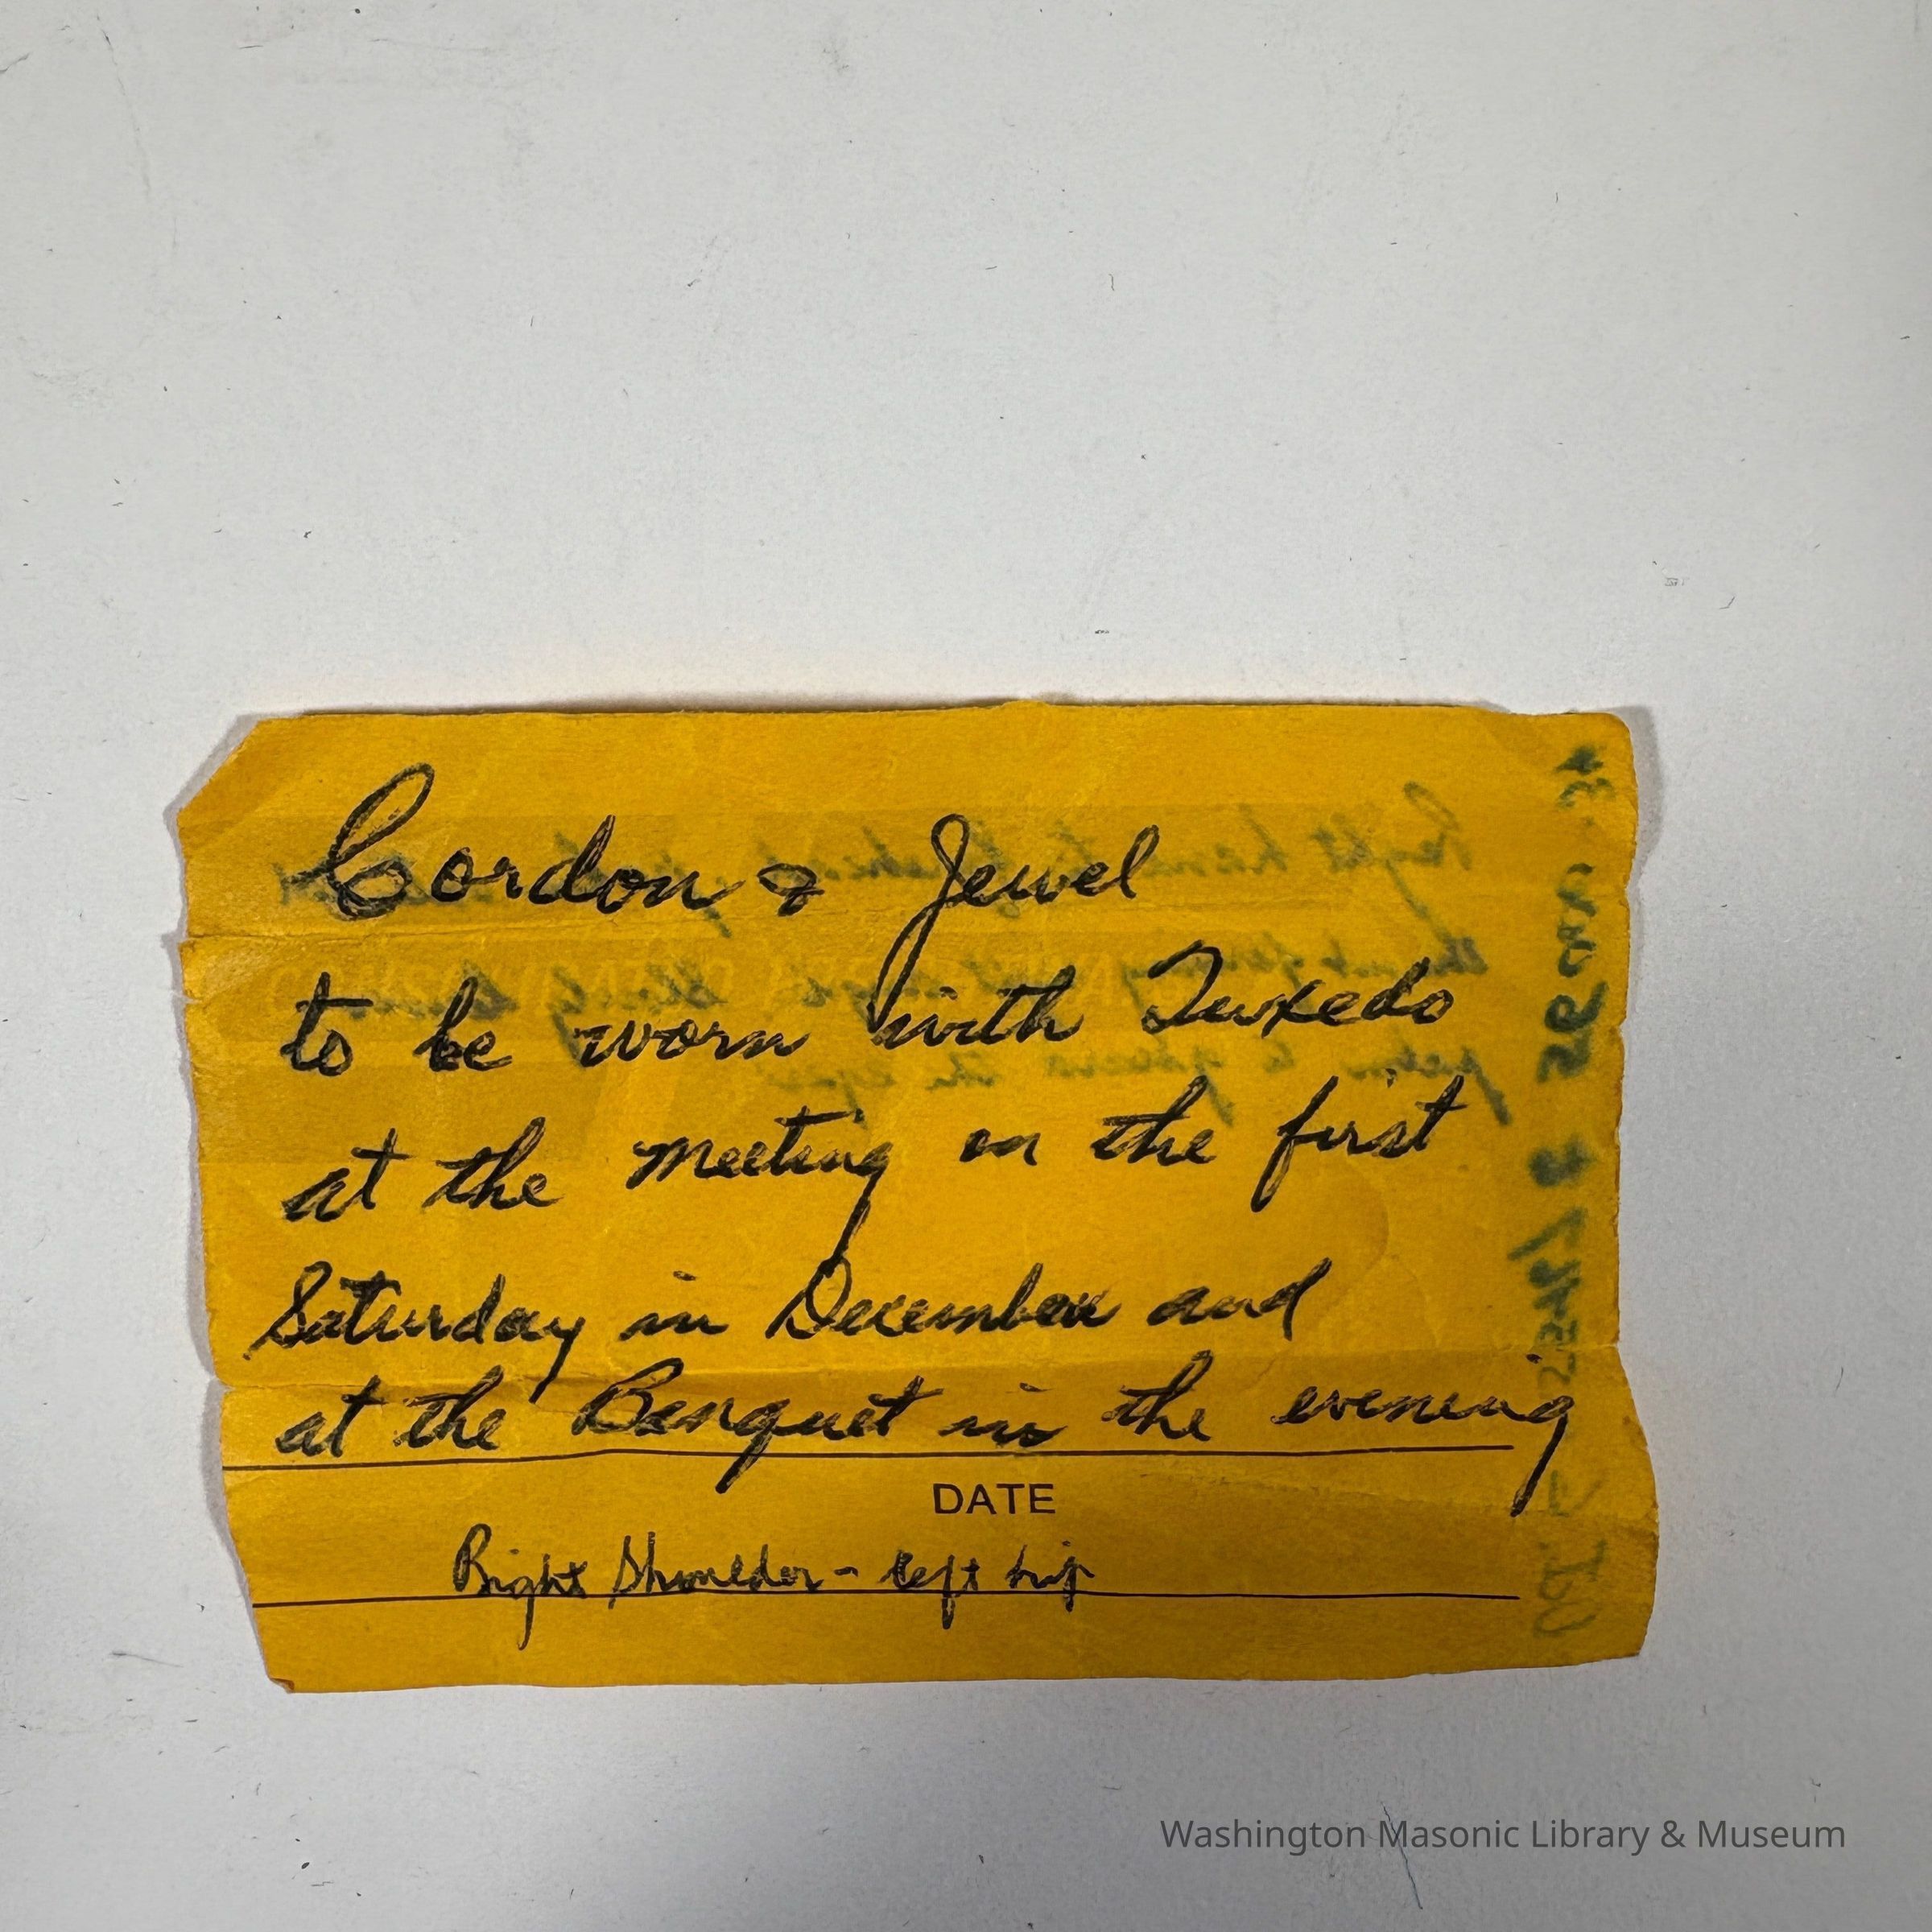 Cordon & Jewel
to be worn with Tuxedo
at the meeting on the first
Saturday in December and
at the Banquet in the evening
DATE
Right Shoulder - left hip
Washington Masonic Library & Museum